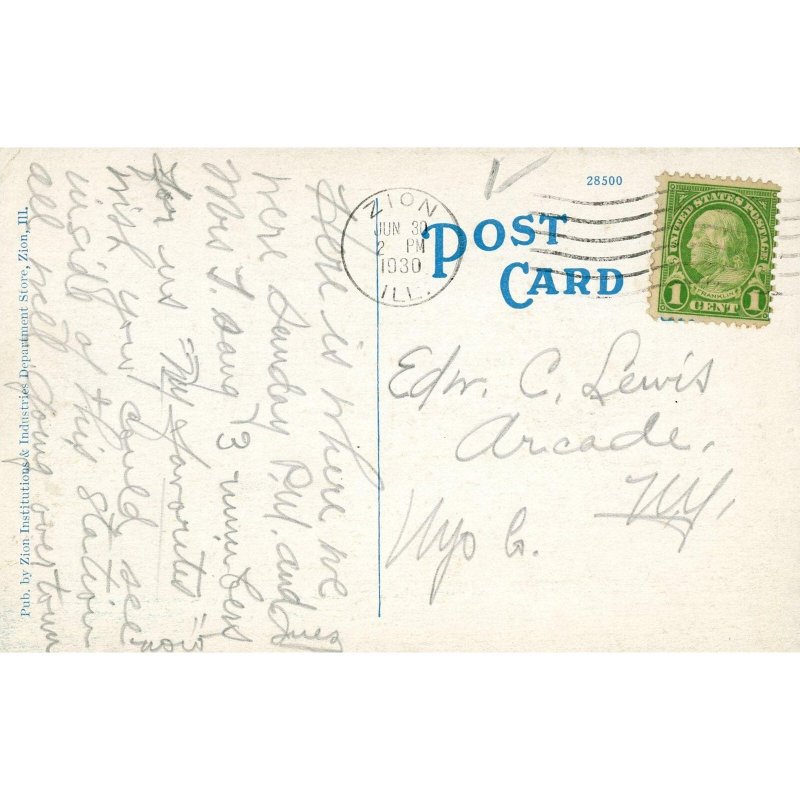 28500
POST
CARD
ZION
JUN 30
2 PM
1930
ILL.
UNITED STATES POSTAGE
FRANKLIN
1 CENT 1
Edw. C. Lewis
Arcade.
N.Y.
Wyo Co.
Here is where we
were Sunday P.M. and Tues
Mrs T. sang 3 numbers
For us "My favorites"
wish you could see
inside of this station
all well going over town
Pub. by Zion Institutions & Industries Department Store, Zion, Ill.